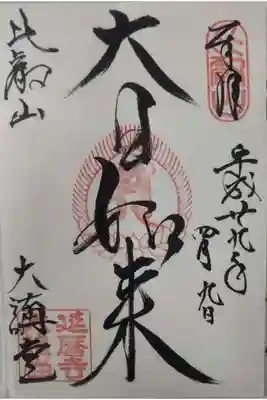 奉拝
平成廿九年
四月九日
大日如来
比叡山
大講堂
延暦寺